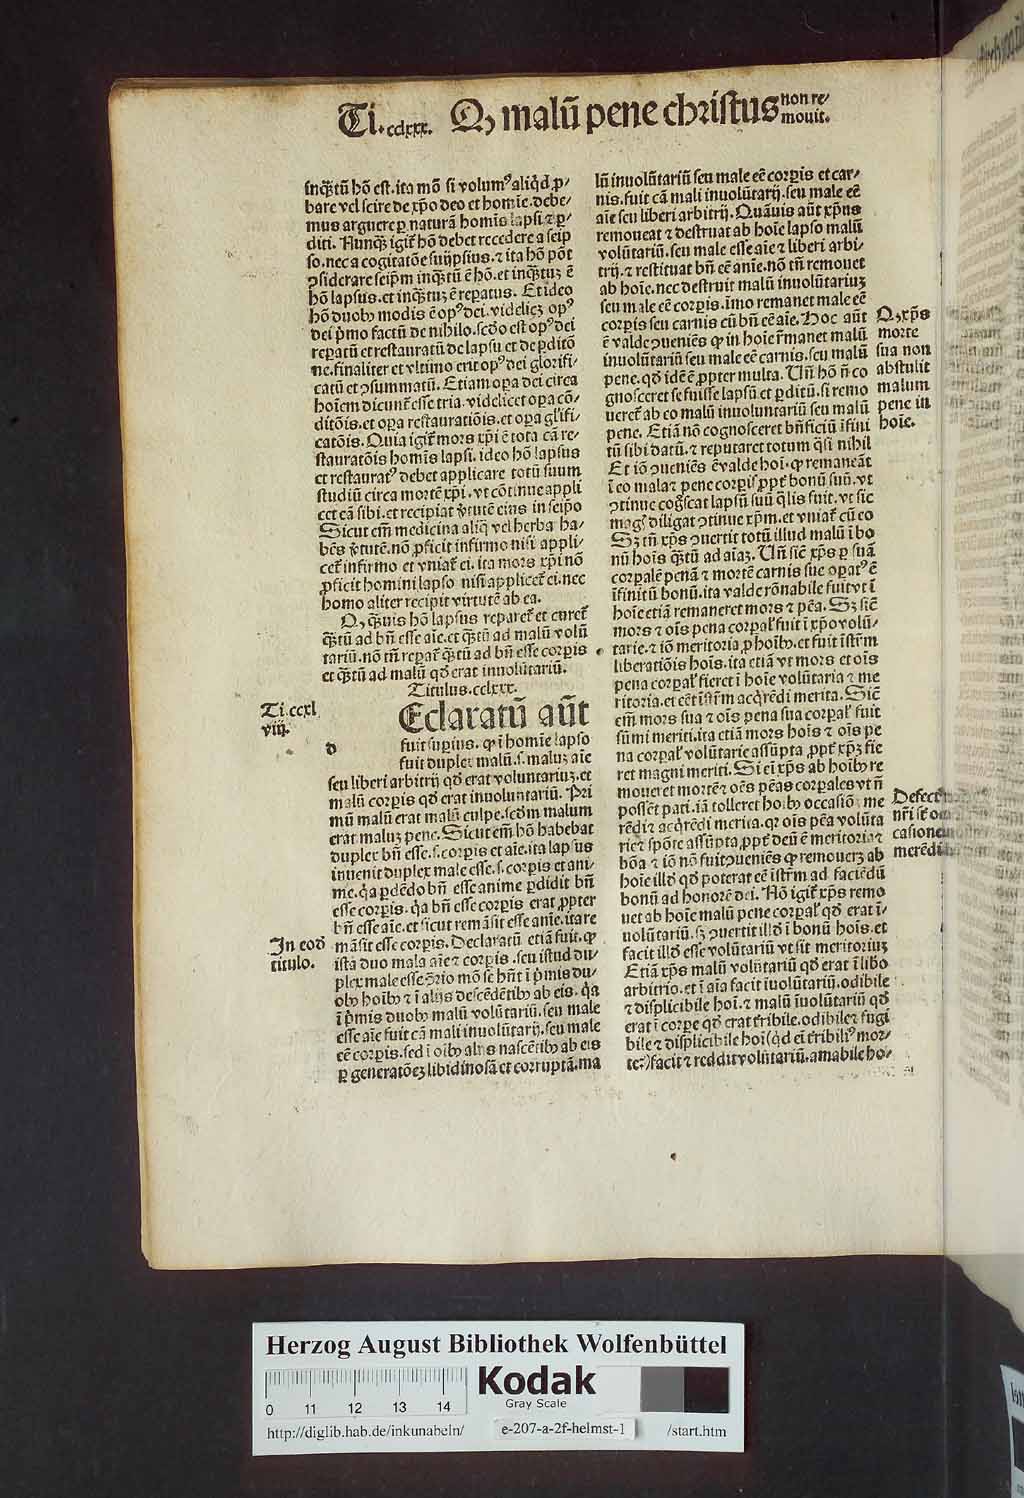 Ti.cclxxx. Qꝫ malū pene christus non re/
mouit.
inqȝtū hō est. ita mō si volumꝰ aliqd ꝓ/
bare vel scire de xp̄o deo et homīe. debe/
mus arguere ꝑ naturā homīs lapsi ⁊ ꝑ/
diti. Nunqȝ igit᷑ hō debet recedere a seip
so. nec a cogitatōe suijpsius. ⁊ ita hō pōt
ꝯsiderare seipm̄ inqȝtū ē hō. et inqȝtuꝫ ē
hō lapsus. et inqȝtuꝫ ē reꝑatus. Et ideo
hō duobꝰ modis ē opꝰ dei. videlicꝫ opꝰ
dei p̄mo factū de nihilo. scdo est opꝰ dei
reꝑatū et restauratū de lapsu et de ꝑditō
ne. finaliter et vltimo erit opꝰ dei glorifi/
catū et ꝯsummatū. Etiam oꝑa dei circa
hoīem dicunt᷑ esse tria. videlicet oꝑa cō/
ditōis. et oꝑa restauratiōis. et oꝑa gl'ifi/
catōis. Quia igit᷑ mors xp̄i ē tota cā re/
stauratōis homīs lapsi. ideo hō lapsus
et restauratꝰ debet applicare totū suum
studiū circa mortē xp̄i. vt cōtinue appli
cet eā sibi. et recipiat v̓tutē eius in seipo
Sicut em̄ medicina aliq̄ vel herba ha/
bēs v̓tutē. nō ꝓficit infirmo nisi appli/
cet᷑ infirmo et vniat᷑ ei. ita mors xp̄i nō
ꝓficit homini lapso nisi applicet᷑ ei. nec
homo aliter recipit virtutē ab ea.
Qꝫ qȝuis hō lapsus reparet᷑ et curet᷑
qȝtū ad bn̄ esse aīe. et qȝtū ad malū volū
tariū. nō tn̄ reꝑat᷑ qȝtū ad bn̄ esse corꝑis
et qȝtū ad malū qd̓ erat inuolūtariū.
Titulus. cclxxx.
Ti. ccxl
viij.
d
Eclaratū aūt
fuit suꝑius. ꝙ ī homīe lapso
fuit duplex malū. s. maluꝫ aīe
seu liberi arbitrij qd̓ erat voluntariuꝫ. et
malū corꝑis qd̓ erat inuoluntariū. Pri
mū malū erat malū culpe. scd̓m malum
erat maluꝫ pene. Sicut em̄ hō habebat
duplex bn̄ esse. s. corꝑis et aīe. ita lapsus
inuenit duplex male esse. s. corꝑis et ani/
me. q̓a ꝑdēdo bn̄ esse anime ꝑdidit bn̄
esse corꝑis. q̓a bn̄ esse corꝑis erat ꝓpter
bn̄ esse aīe. et sicut remāsit esse anīe. ita re
māsit esse corꝑis. Declaratū etiā fuit. ꝙ
In eod̓
titulo.
ista duo mala aīe ⁊ corꝑis. seu istud du/
plex male esse ꝯ̓rio mō se hn̄t ī p̄mis du/
obꝰ hoībꝰ ⁊ ī alijs descēdētibꝰ ab eis. q̓a
ī p̄mis duobꝰ malū volūtariū. seu male
esse aīe fuit cā mali inuolūtarij. seu male
eē corꝑis. sed ī oībꝰ alijs nascētibꝰ ab eis
ꝑ generatōeꝫ libidinosā et corruptā. ma
lū inuolūtariū seu male eē corꝑis et car/
nis. fuit cā mali inuolūtarij. seu male eē
aīe seu liberi arbitrij. Quāuis aūt xp̄us
remoueat ⁊ destruat ab hoīe lapso malū
volūtariū. seu male esse aīe ⁊ liberi arbi/
trij. ⁊ restituat bn̄ eē anīe. nō tn̄ remouet
ab hoīe. nec destruit malū inuolūtariuꝫ
seu male eē corꝑis. īmo remanet male eē
corꝑis seu carnis cū bn̄ eē aīe. Hoc aūt
ē valde ꝯueniēs ꝙ in hoīe r̄manet malū
inuolūtariū seu male eē carnis. seu malū
pene. qd̓ idē ē ꝓpter multa. Vn̄ hō n̄ co
gnosceret se fuisse lapsū et ꝑditū. si remo
ueret᷑ ab eo malū inuoluntariū seu malū
pene. Etiā nō cognosceret bn̄ficiū īfini
tū sibi datū. ⁊ reputaret totum q̄si nihil
Et iō ꝯueniēs ē valde hoī. ꝙ remaneāt
ī eo mala ⁊ pene corꝑis ꝓpt᷑ bonū suū. vt
ꝯtinue cogscat lapsū suū q̄lis fuit. vt sic
magꝭ diligat ꝯtinue xp̄m. et vniat᷑ cū eo
Sꝫ tn̄ xp̄s ꝯuertit totū illud malū ī bo
nū hoīs qȝtū ad aīaꝫ. Vn̄ sic̄ xp̄s ꝑ suā
corꝑalē penā ⁊ mortē carnis sue oꝑatꝰ ē
īfinitū bonū. ita valde rōnabile fuit vt ī
hoīe etiā remaneret mors ⁊ pēa. Sꝫ sic̄
mors ⁊ oīs pena corꝑal' fuit ī xp̄o volū/
tarie. ⁊ iō meritoria ꝓ hoībꝰ. et fuit īstr̄m
liberatiōis hoīs. ita etiā vt mors et oīs
pena corꝑal' fieret ī hoīe volūtaria ⁊ me
ritoria. et eēt īstr̄m acq̄rēdi merita. Sic̄
em̄ mors sua ⁊ oīs pena sua corꝑal' fuit
sūmi meriti. ita etiā mors hoīs ⁊ oīs pe
na corꝑal' volūtarie assūpta ꝓpt᷑ xp̄ꝫ fie
ret magni meriti. Si ei̓ xp̄s ab hoībꝰ re
moueret mortē ⁊ oēs pēas corꝑales vt n̄
possēt pati. iā tolleret hoībꝰ occasiōꝫ me
rēdi ⁊ acq̄rēdi merita. qꝛ oīs pēa volūta
rie ⁊ spōte assūpta ꝓpt᷑ deū ē meritoria ⁊
bōa ⁊ iō nō fuit ꝯueniēs ꝙ remoueꝫ ab
hoīe illd̓ qd̓ poterat eē īstr̄m ad faciēdū
bonū ad honorē dei. Nō igit᷑ xp̄s remo
uet ab hoīe malū pene corꝑal' qd̓ erat ī/
uolūtariū. sꝫ ꝯuertit illd̓ ī bonū hoīs. et
facit illd̓ esse volūtariū vt sit meritoriuꝫ
Etiā xp̄s malū volūtariū qd̓ erat ī lib̓o
arbitrio. et ī aīa facit īuolūtariū. odibile
⁊ displicibile hoī. ⁊ malū īuolūtariū qd̓
erat ī corꝑe qd̓ erat t̓ribile. odibile ⁊ fugi
bile ⁊ displicibile hoī (qd̓ ei̓ t̓ribiliꝰ mor/
te:) facit ⁊ reddit volūtariū. amabile ho/
Qꝫ xp̄s
morte
sua non
abstulit
malum
pene in
hoīe.
Defect᷑
nr̄i st̄
casione
merēdi
Herzog August Bibliothek Wolfenbüttel
0 11 12 13 14
Kodak
Gray Scale
http://diglib.hab.de/inkunabeln/ e-207-a-2f-helmst-1 /start.htm